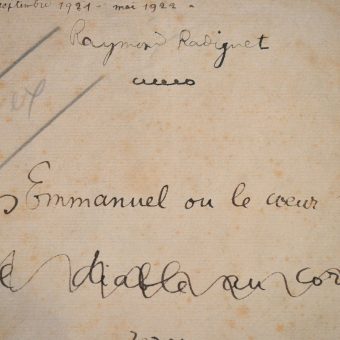 septembre 1921 - mai 1922 -
Raymond Radiguet
Emmanuel ou le cœur
le diable au cor